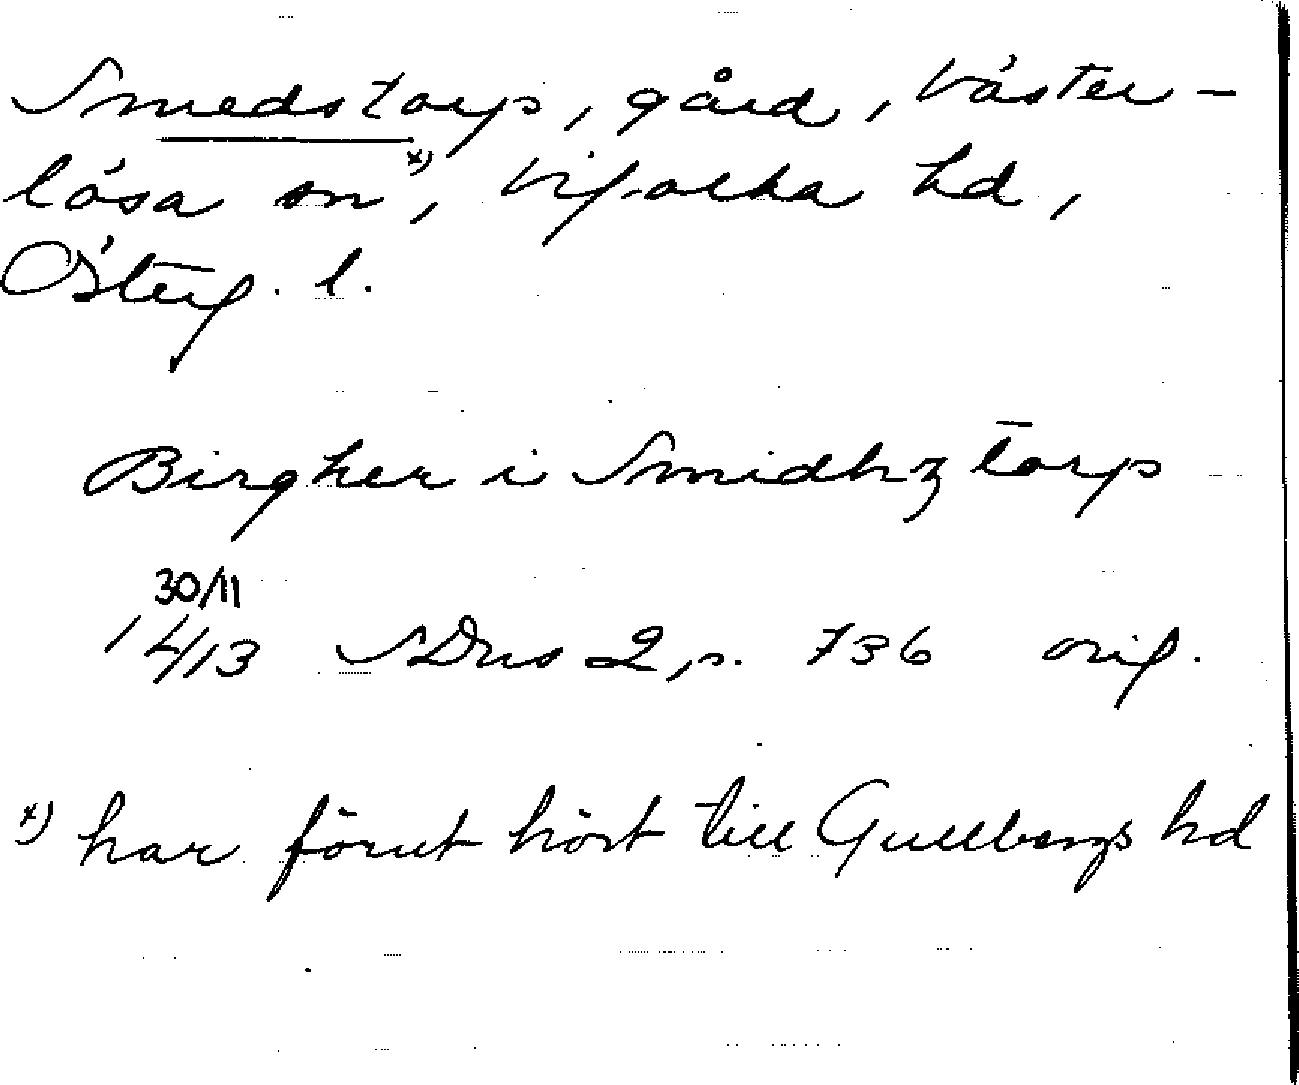 Smedstorp, gård, Väster-
lösa sn x), Vifolka hd,
Österg. l.
Birgher i Smidhz torp
30/11
14/13 SDns 2, p. 736 orig.
x) har förut hört till Gullbergs hd